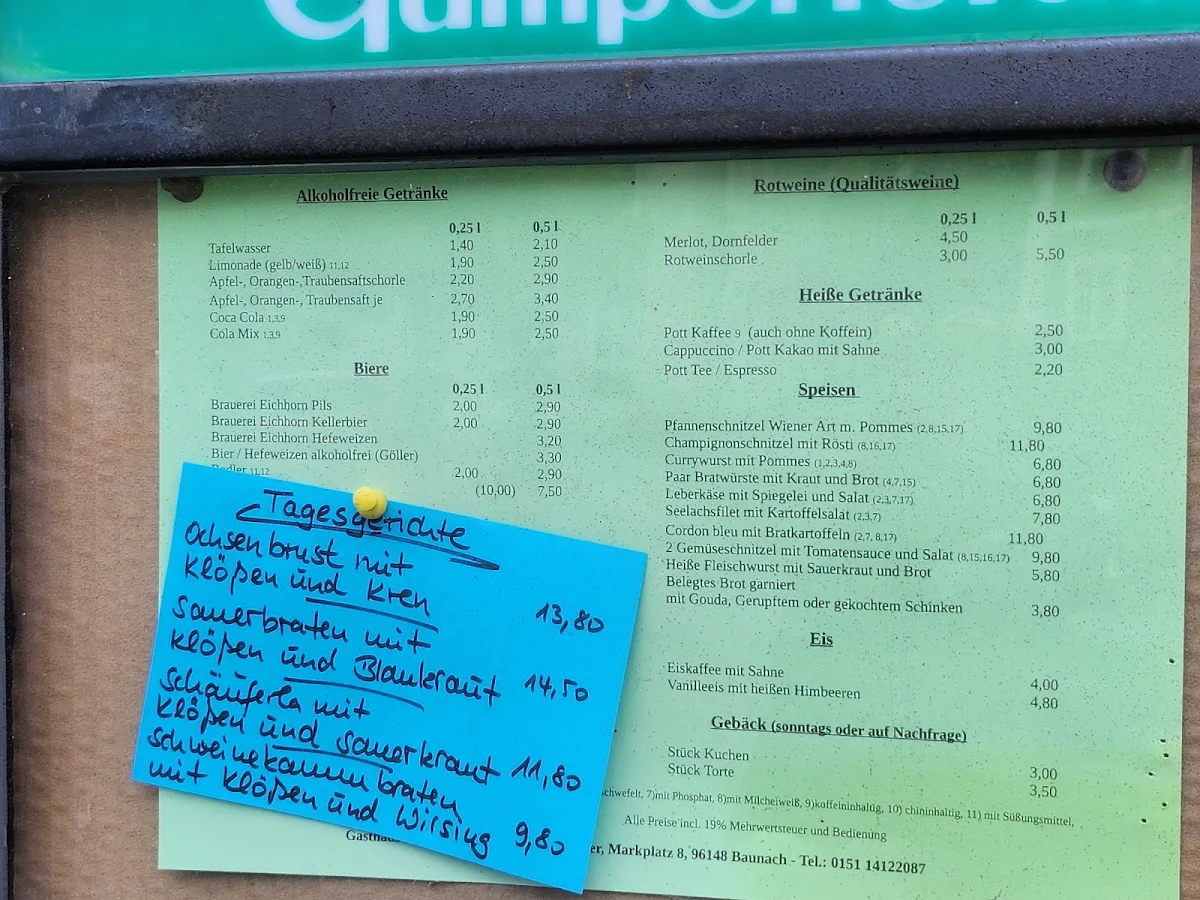 Alkoholfreie Getränke
0,25 l 0,5 l
Tafelwasser 1,40 2,10
Limonade (gelb/weiß) 11,12 1,90 2,50
Apfel-, Orangen-,Traubensaftschorle 2,20 2,90
Apfel-, Orangen-, Traubensaft je 2,70 3,40
Coca Cola 1,3,9 1,90 2,50
Cola Mix 1,3,9 1,90 2,50
Biere
0,25 l 0,5 l
Brauerei Eichhorn Pils 2,00 2,90
Brauerei Eichhorn Kellerbier 2,00 2,90
Brauerei Eichhorn Hefeweizen 3,20
Bier / Hefeweizen alkoholfrei (Göller) 3,30
Radler 11,12 2,00 2,90
(10,00) 7,50
Tagesgerichte
Ochsenbrust mit
Klößen und Kren 13,80
Sauerbraten mit
Klößen und Blaukraut 14,50
Schäuferla mit
Klößen und Sauerkraut 11,80
Schweinekammbraten
mit Klößen und Wirsing 9,80
Rotweine (Qualitätsweine)
0,25 l 0,5 l
Merlot, Dornfelder 4,50
Rotweinschorle 3,00 5,50
Heiße Getränke
Pott Kaffee 9 (auch ohne Koffein) 2,50
Cappuccino / Pott Kakao mit Sahne 3,00
Pott Tee / Espresso 2,20
Speisen
Pfannenschnitzel Wiener Art m. Pommes (2,8,15,17) 9,80
Champignonschnitzel mit Rösti (8,16,17) 11,80
Currywurst mit Pommes (1,2,3,4,8) 6,80
Paar Bratwürste mit Kraut und Brot (4,7,15) 6,80
Leberkäse mit Spiegelei und Salat (2,3,7,17) 6,80
Seelachsfilet mit Kartoffelsalat (2,3,7) 7,80
Cordon bleu mit Bratkartoffeln (2,7, 8,17) 11,80
2 Gemüseschnitzel mit Tomatensauce und Salat (8,15,16,17) 9,80
Heiße Fleischwurst mit Sauerkraut und Brot 5,80
Belegtes Brot garniert
mit Gouda, Gerupftem oder gekochtem Schinken 3,80
Eis
Eiskaffee mit Sahne 4,00
Vanilleeis mit heißen Himbeeren 4,80
Gebäck (sonntags oder auf Nachfrage)
Stück Kuchen 3,00
Stück Torte 3,50
schwefelt, 7)mit Phosphat, 8)mit Milcheiweiß, 9)koffeininhaltig, 10) chininhaltig, 11) mit Süßungsmittel,
Alle Preise incl. 19% Mehrwertsteuer und Bedienung
er, Markplatz 8, 96148 Baunach - Tel.: 0151 14122087